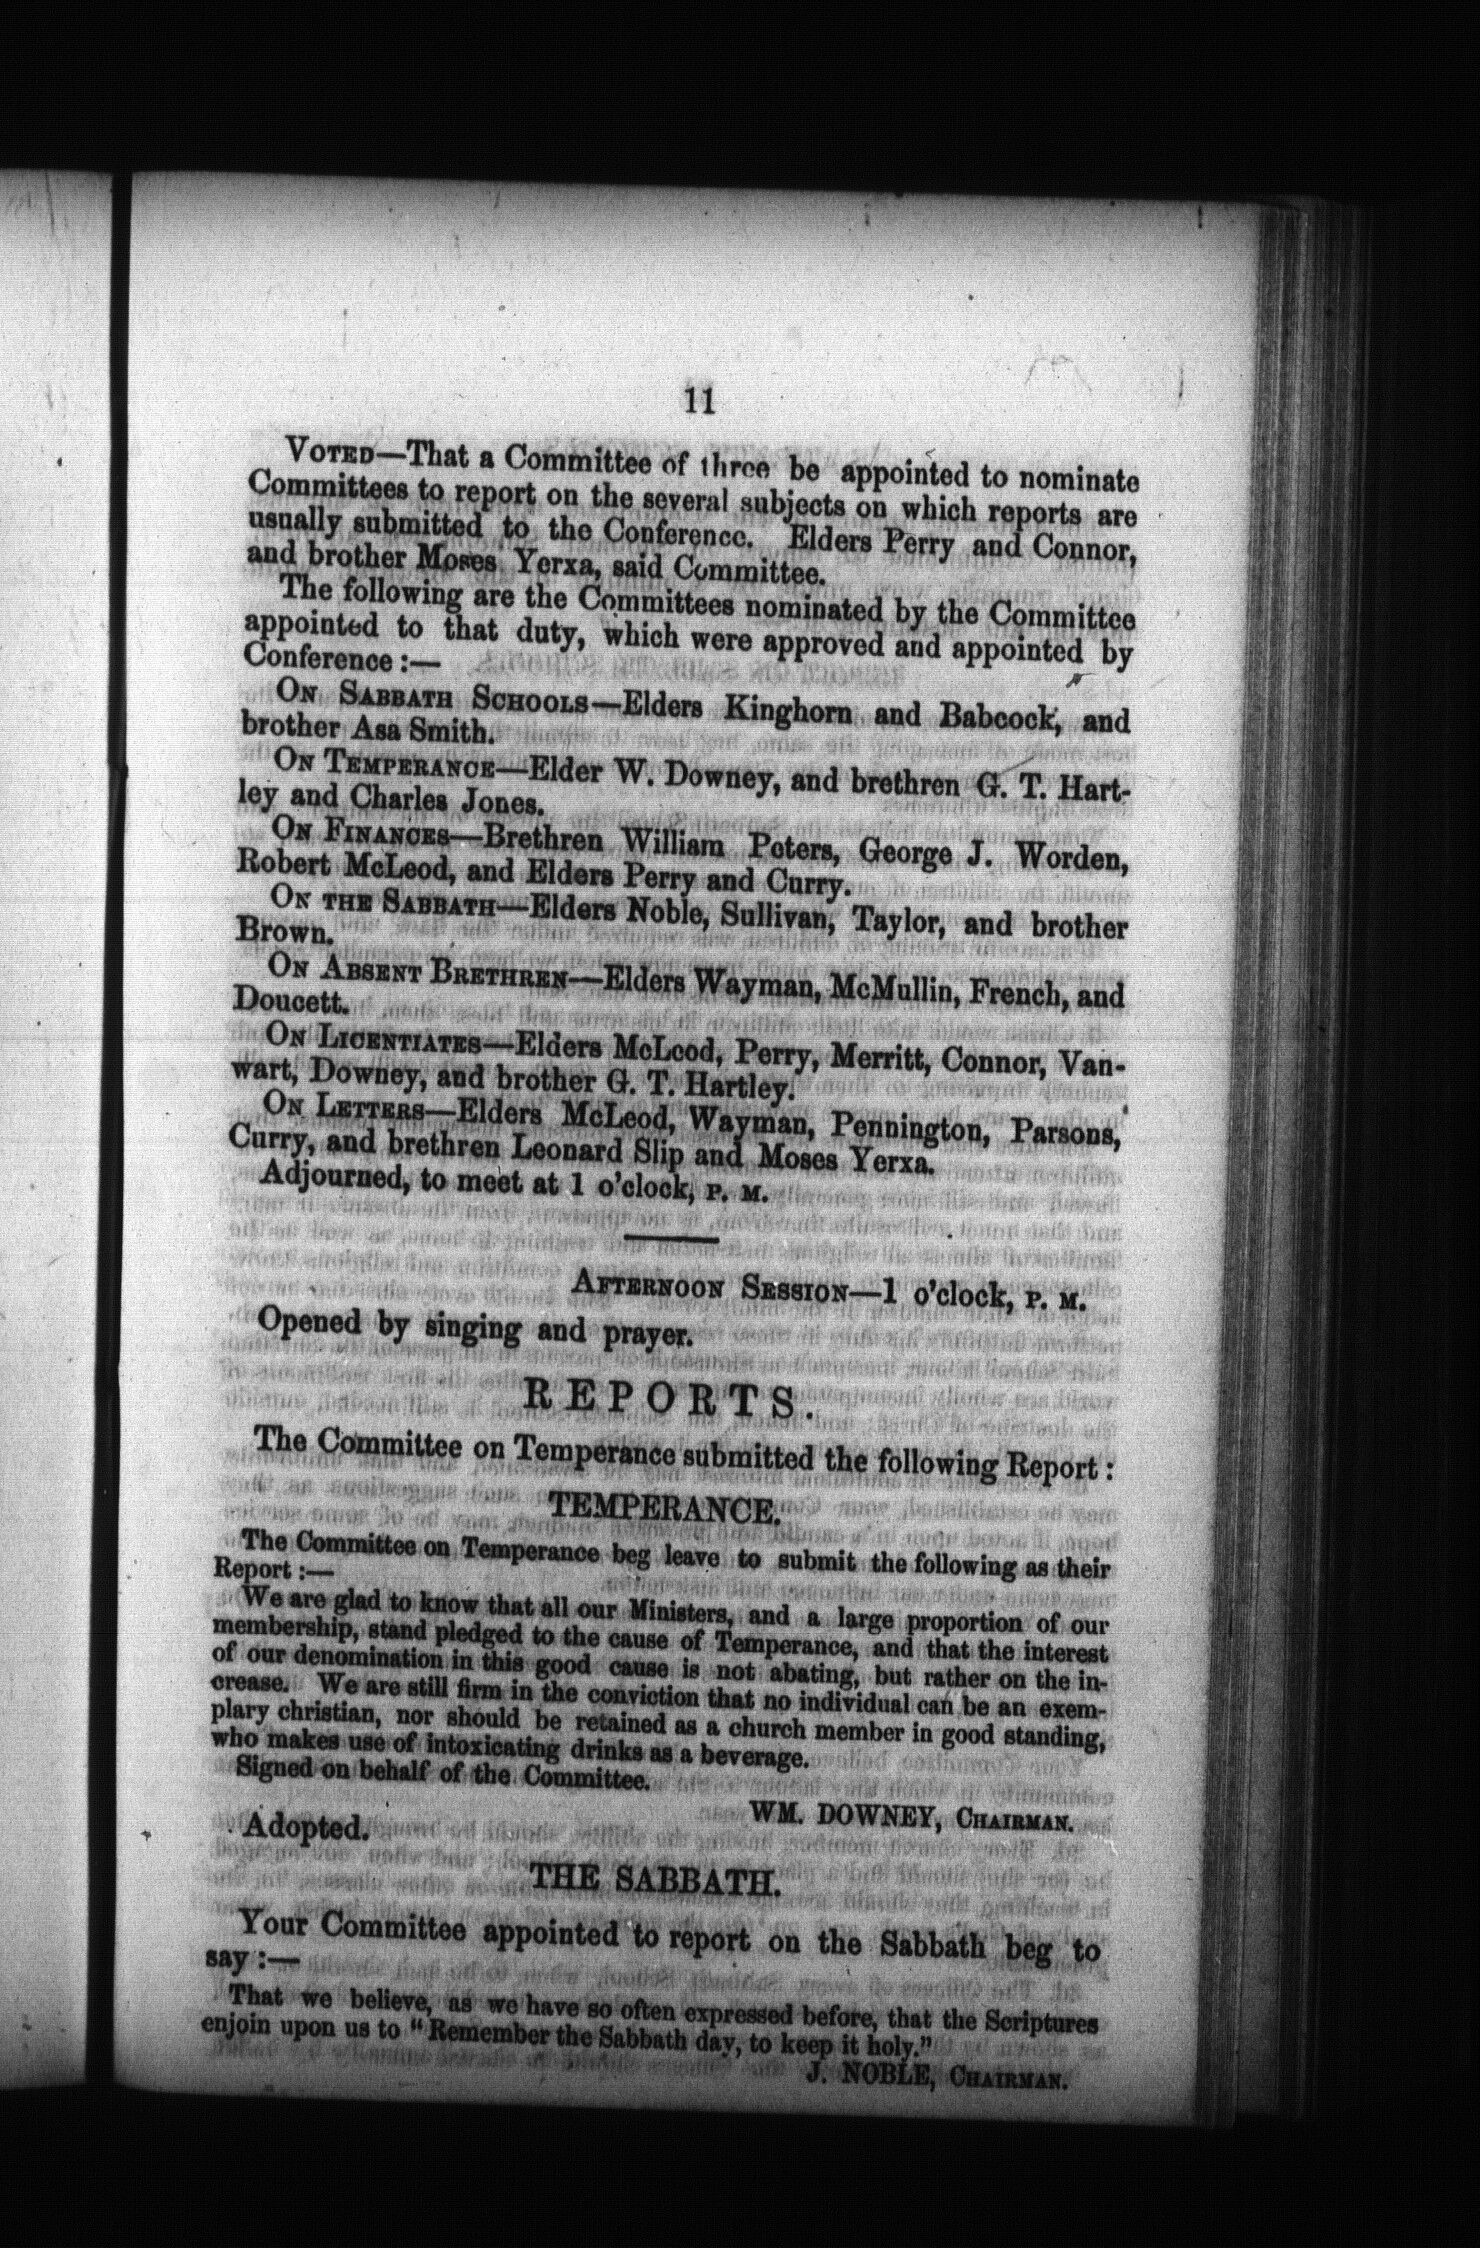 11
VOTED—That a Committee of three be appointed to nominate
Committees to report on the several subjects on which reports are
usually submitted to the Conference. Elders Perry and Connor,
and brother Moses Yerxa, said Committee.
The following are the Committees nominated by the Committee
appointed to that duty, which were approved and appointed by
Conference :—
ON SABBATH SCHOOLS—Elders Kinghorn and Babcock, and
brother Asa Smith.
ON TEMPERANCE—Elder W. Downey, and brethren G. T. Hart-
ley and Charles Jones.
ON FINANCES—Brethren William Peters, George J. Worden,
Robert McLeod, and Elders Perry and Curry.
ON THE SABBATH—Elders Noble, Sullivan, Taylor, and brother
Brown.
ON ABSENT BRETHREN—Elders Wayman, McMullin, French, and
Doucett.
ON LICENTIATES—Elders McLeod, Perry, Merritt, Connor, Van-
wart, Downey, and brother G. T. Hartley.
ON LETTERS—Elders McLeod, Wayman, Pennington, Parsons,
Curry, and brethren Leonard Slip and Moses Yerxa.
Adjourned, to meet at 1 o'clock, P. M.
AFTERNOON SESSION—1 o'clock, P. M.
Opened by singing and prayer.
REPORTS.
The Committee on Temperance submitted the following Report :
TEMPERANCE.
The Committee on Temperance beg leave to submit the following as their
Report :—
We are glad to know that all our Ministers, and a large proportion of our
membership, stand pledged to the cause of Temperance, and that the interest
of our denomination in this good cause is not abating, but rather on the in-
crease. We are still firm in the conviction that no individual can be an exem-
plary christian, nor should be retained as a church member in good standing,
who makes use of intoxicating drinks as a beverage.
Signed on behalf of the Committee.
WM. DOWNEY, CHAIRMAN.
Adopted.
THE SABBATH.
Your Committee appointed to report on the Sabbath beg to
say :—
That we believe, as we have so often expressed before, that the Scriptures
enjoin upon us to "Remember the Sabbath day, to keep it holy."
J. NOBLE, CHAIRMAN.